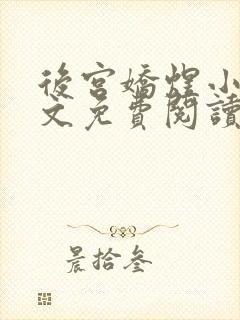 後宮嬌煋小
文免費閱讀
晨拾叁